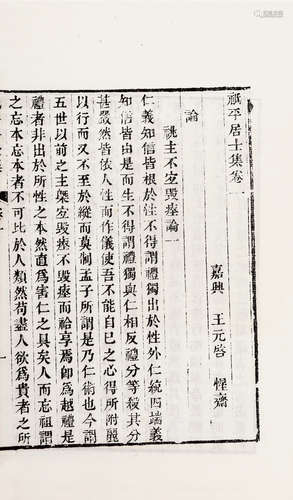 祗平居士集卷一
嘉興 王元啓 惺齋
論
祧主不宜毀瘞論一
仁義知信皆根於性不得謂禮獨出於性外仁統四端義
知信皆由是而生不得謂禮獨與仁相反禮分等殺其分
甚嚴然皆依人性而作儀使人不能自已之心得所附麗
以行而又不至於縱而莫制孟子所謂是乃仁術也今謂
五世以前之主槩宜毀瘞不毀瘞而祫享焉卽為越禮是
禮者非出於所性之本然直為害仁之具矣人而忘祖謂
之忘本忘本者不可比於人類然苟盡人欲為貴者之所